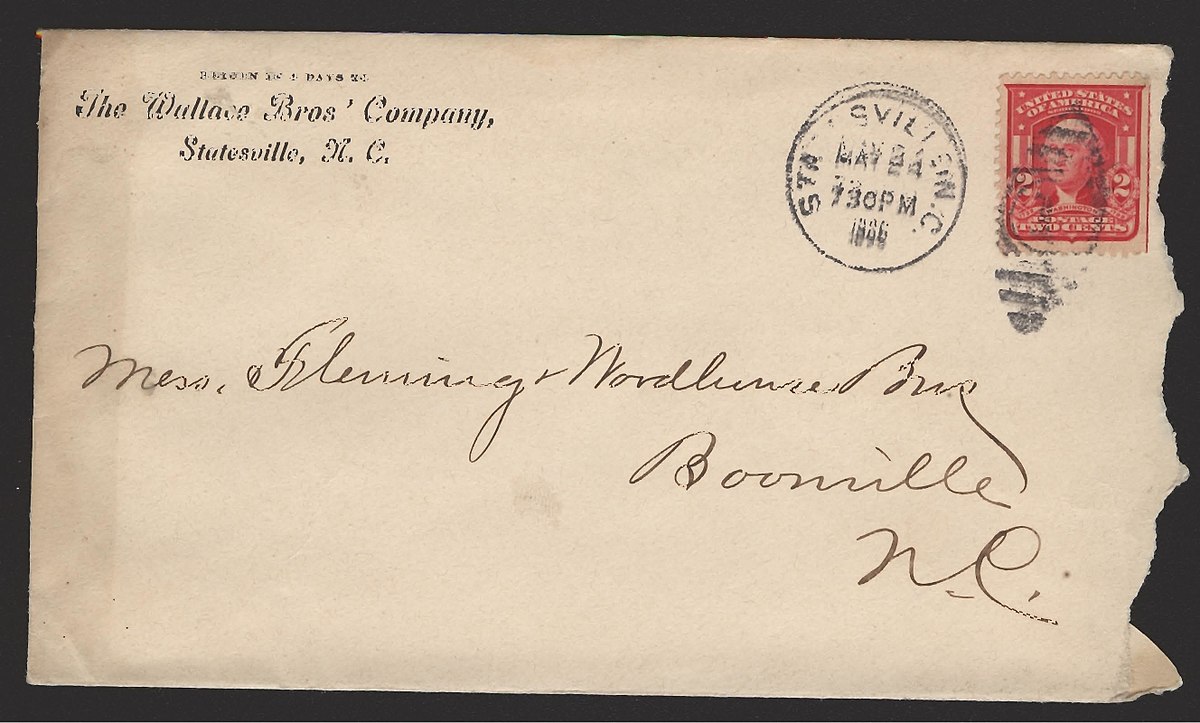 RETURN IN 5 DAYS TO
The Wallace Bros' Company,
Statesville, N. C.
STATESVILLE, N.C.
MAY 24
730PM
1906
UNITED STATES
OF AMERICA
2 WASHINGTON 2
POSTAGE
TWO CENTS
Mess. Fleming & Woodhouse Bros
Boonville
N. C.